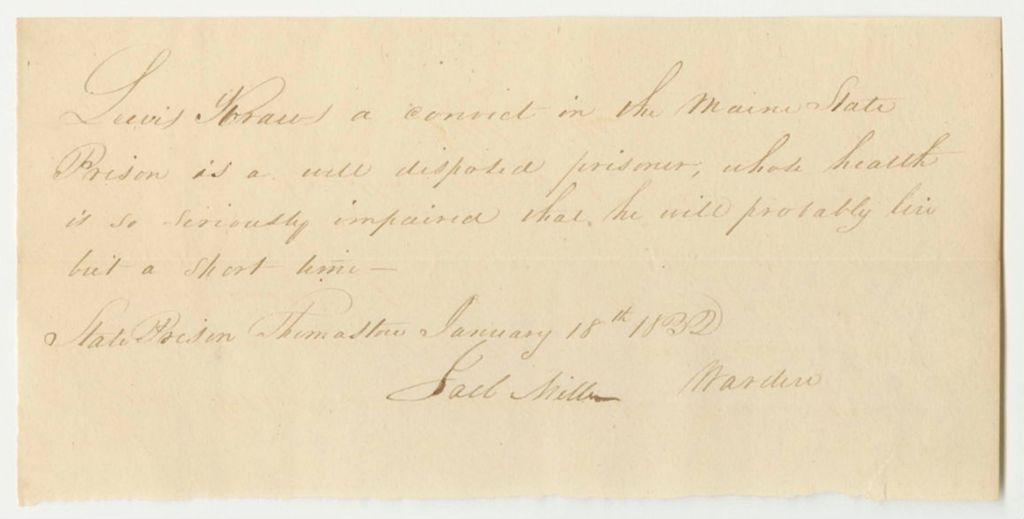 Lewis Kraus a convict in the Maine State
Prison is a well disposed prisoner, whose health
is so seriously impaired that he will probably live
but a short time —
State Prison Thomaston January 18th 1832
Joel Miller Warden